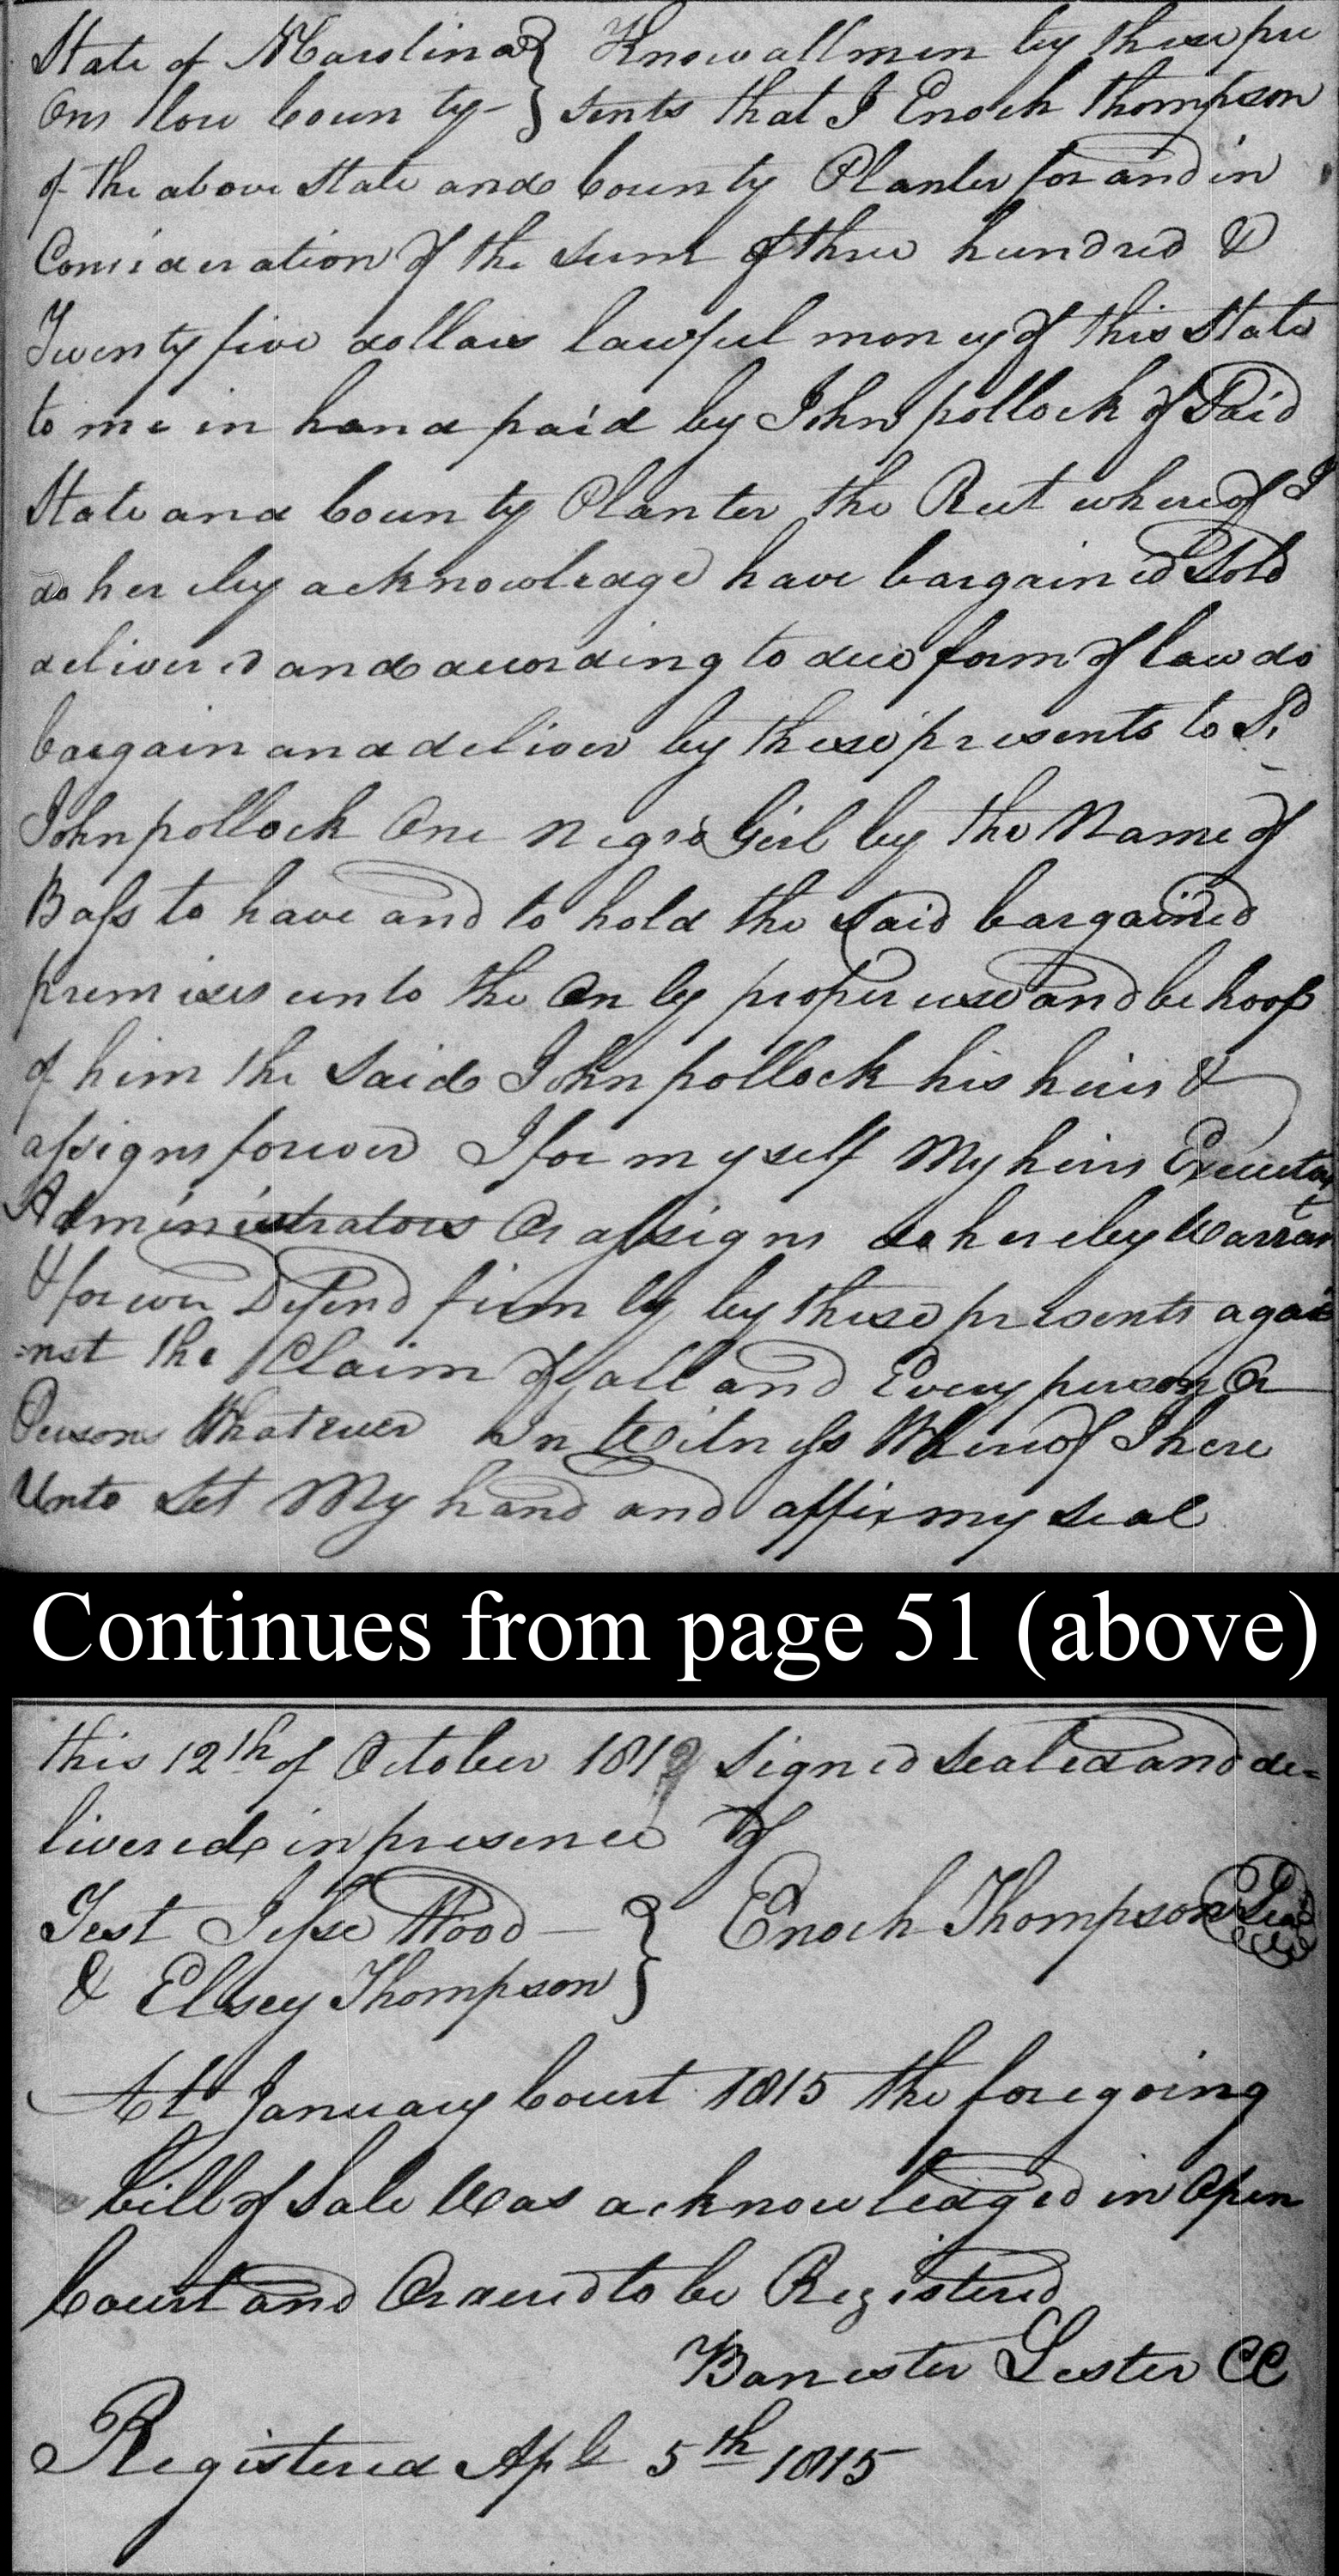 State of NCarolina } Know all men by these pre
Onslow County - } sents that I Enoch Thompson
of the above State and County Planter for and in
Consideration of the sum of three hundred &
Twenty five dollars lawful money of this State
to me in hand paid by John pollock of Said
State and County Planter the Rect whereof I
do hereby acknowledge have bargained Sold
delivered and acording to due form of law do
bargain and deliver by these presents to Sd
John pollock One negro Girl by the Name of
Bass to have and to hold the Said bargained
premises unto the Only proper use and behoof
of him the Said John pollock his heirs &
assigns forever I for myself My heirs Executor
Administrators Or assigns do hereby Warrant
& forever Defend firmly by these presents agai
=nst the Claim of all and Every person Or
Persons Whatever In Witness Whereof I here
Unto Set My hand and affix my seal
Continues from page 51 (above)
this 12th of October 181 Signed sealed and de=
livered in presence of
Test Jesse Wood - } Enoch Thompson Seal
& Elsey Thompson }
At January Court 1815 the foregoing
bill of Sale Was acknowledged in Open
Court and Ordered to be Registered
Banester Lester CC
Registered Apl 5th 1815